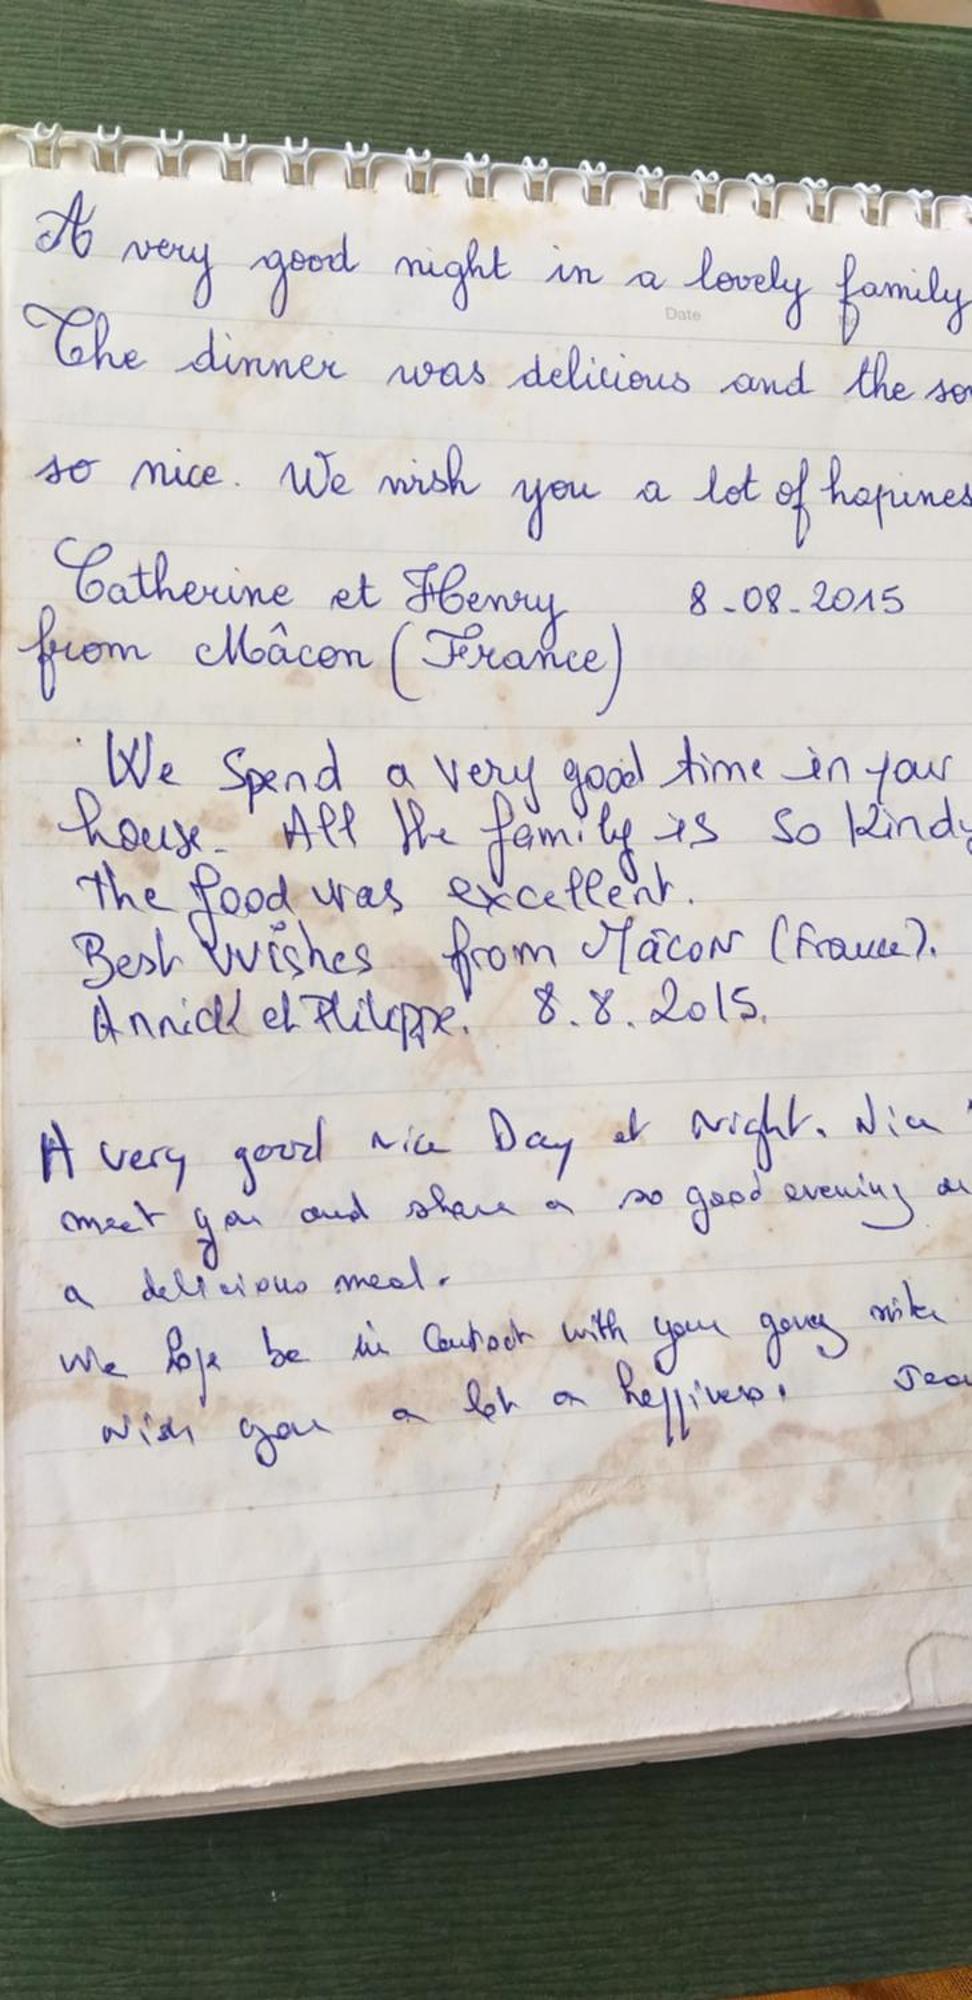 A very good night in a lovely family
Date
The dinner was delicious and the
so nice. We wish you a lot of hapines
Catherine et Henry 8-08-2015
from Mâcon (France)
We Spend a very good time in your
house. All the family is so kindy
the food was excellent.
Best Wishes from Mâcon (France).
Annick et Philippe. 8.8.2015.
A very good nice Day et Night. Nice
meet you and share a so good evening
a delicious meal.
We hope be in contact with your
wish you a lot a happiness.